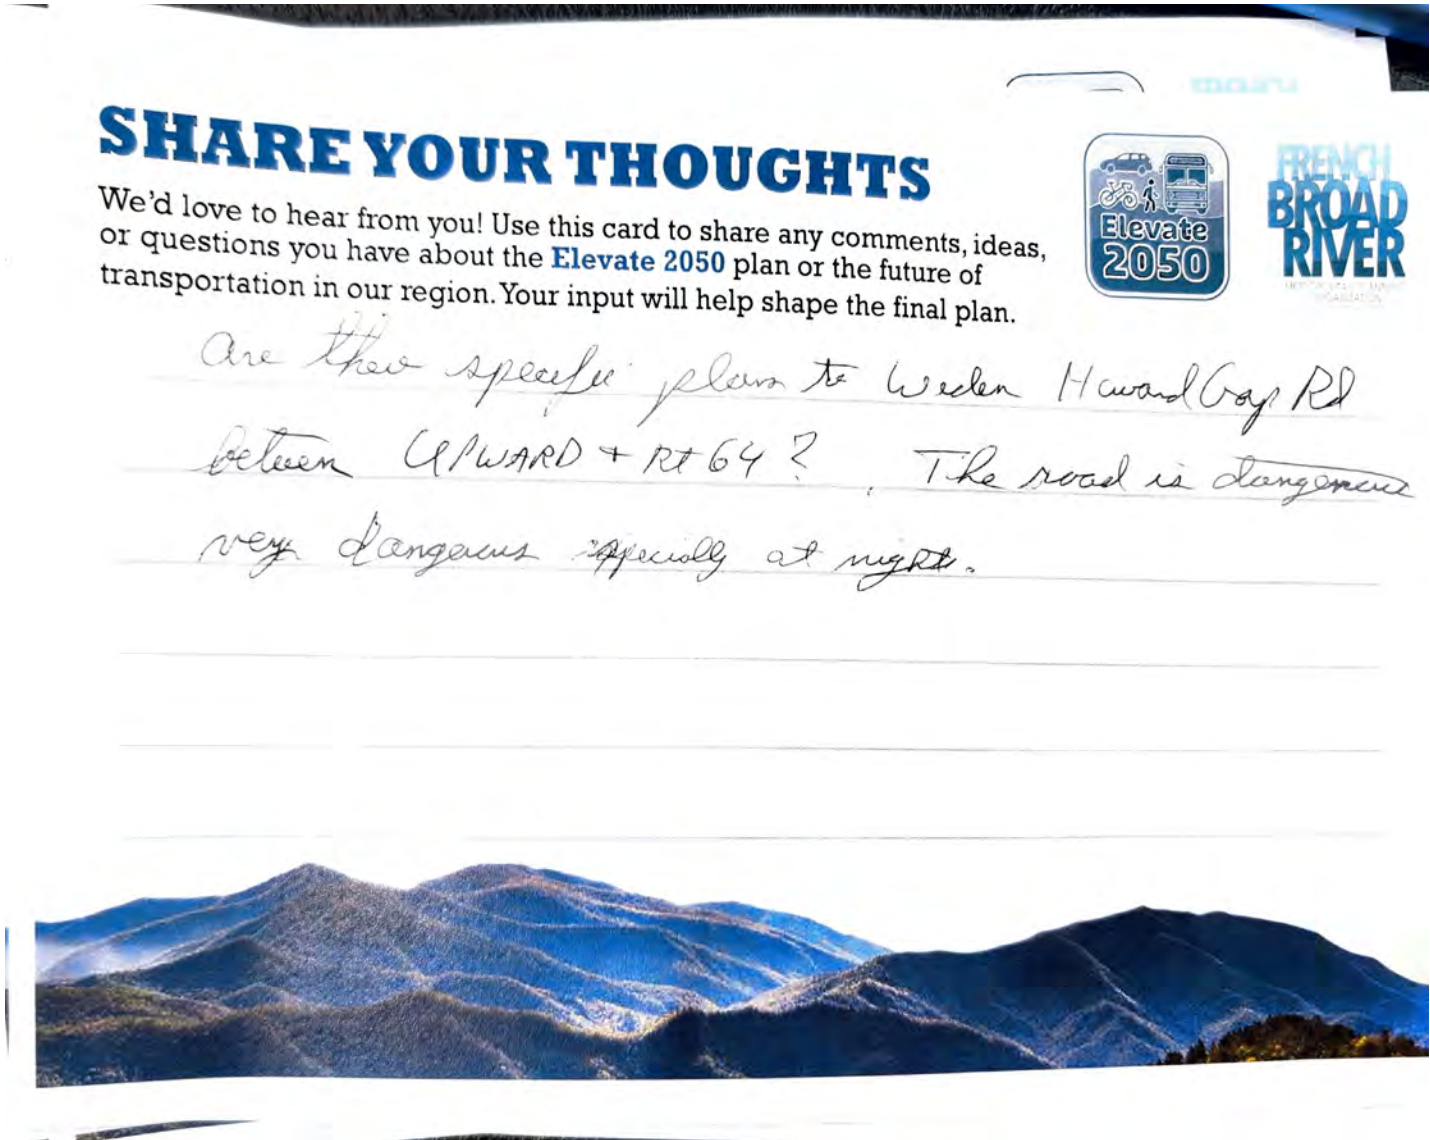 SHARE YOUR THOUGHTS
We'd love to hear from you! Use this card to share any comments, ideas,
or questions you have about the Elevate 2050 plan or the future of
transportation in our region. Your input will help shape the final plan.
Elevate
2050
FRENCH
BROAD
RIVER
Are there specific plans to Widen Howard Gap Rd
between UPWARD + Rt 64? The road is dangerous
very dangerous especially at night.